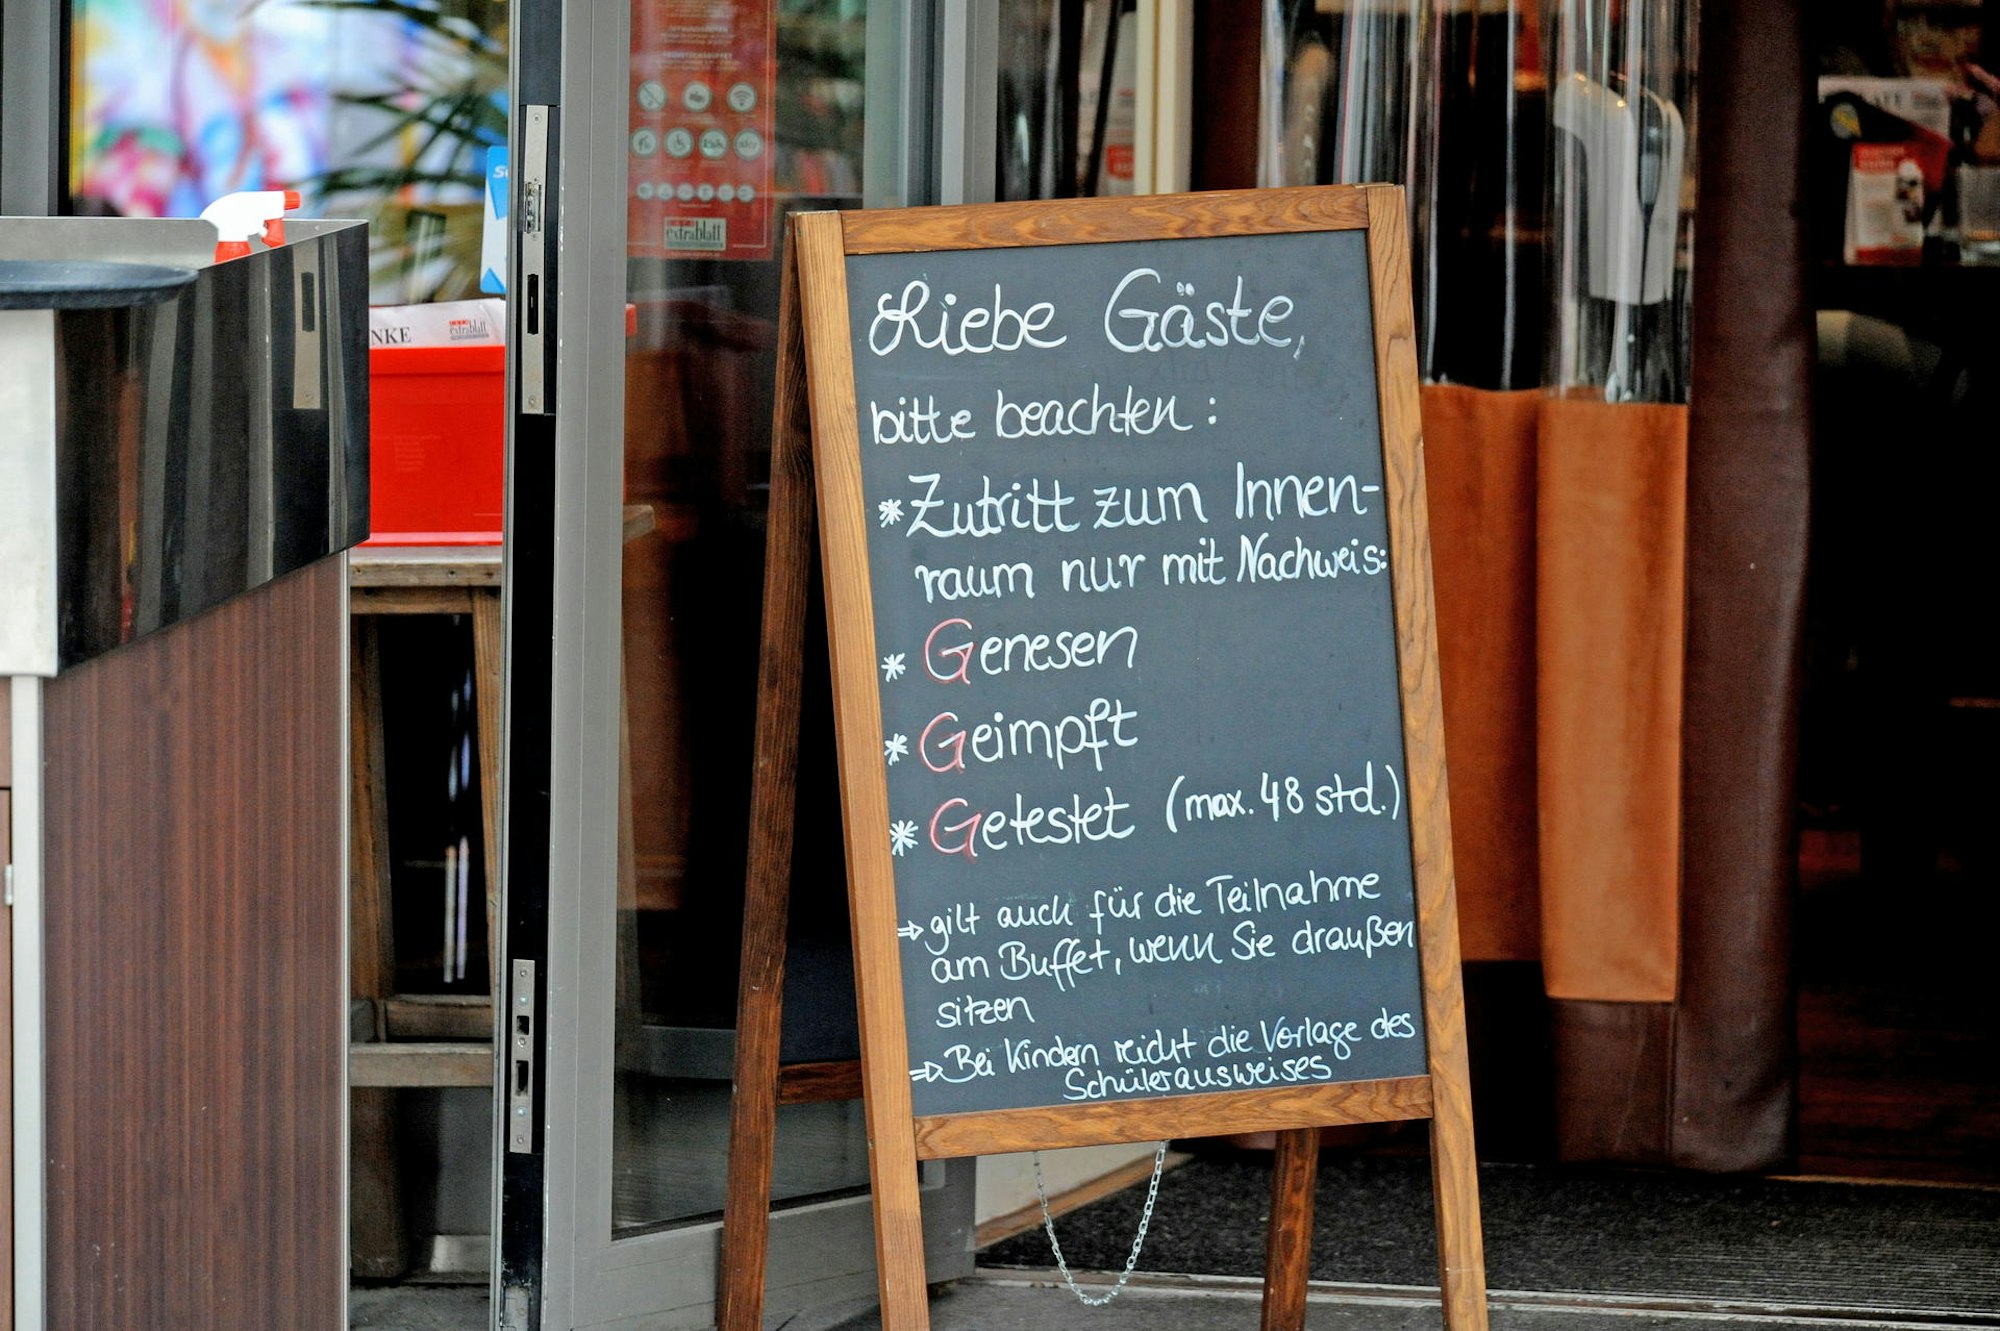 extrablatt
NKE
extrablatt
Liebe Gäste,
bitte beachten:
* Zutritt zum Innen-
raum nur mit Nachweis:
* Genesen
* Geimpft
* Getestet (max. 48 std.)
⇒ gilt auch für die Teilnahme
am Buffet, wenn Sie draußen
sitzen
⇒ Bei Kindern reicht die Vorlage des
Schülerausweises